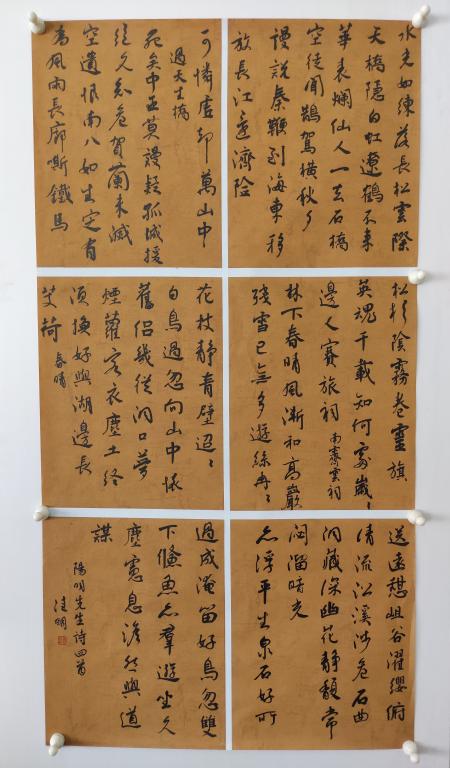 水光如練落長松雲際
天橋隱白虹遼鶴不來
華表爛仙人一去石橋
空徒聞鵲駕橫秋夕
謾說秦鞭到海東移
放長江還濟險
可憐虛却萬山中
過天生橋
死矣中丞莫謾疑孤城援
絕久知危賀蘭未滅
空遺恨南八如生定有
為風雨長廊嘶鐵馬
松杉陰霧卷靈旗
英魂千載知何處歲々
邊人賽旅祠 南霽雲祠
林下春晴風漸和高巖
殘雪已無多遊絲冉々
花枝靜青壁迢々
白鳥過忽向山中懷
舊侶幾從洞口夢
煙蘿客衣塵土終
須換好與湖邊長
芰荷 春晴
送遠憩岨谷濯纓俯
清流沿溪涉危石曲
洞藏深幽花靜馥常
閟溜暗光
亦浮平生泉石好所
過成淹留好鳥忽雙
下鯈魚亦羣遊坐久
塵慮息澹然與道
謀
陽明先生诗四首